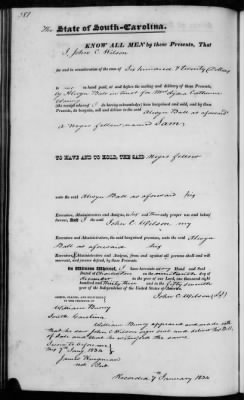 The State of South-Carolina.
KNOW ALL MEN by these Presents, That
I, John C. Wilson
for and in consideration of the sum of Six hundred & Twenty Dollars
to me in hand paid, at and before the sealing and delivery of these Presents,
by Alwyn Ball in trust for Mrs Catherine
(the receipt whereof I do hereby acknowledge) have bargained and sold, and by these
Presents, do bargain, sell and deliver to the said Alwyn Ball as aforesaid
a negro fellow named Sam,
TO HAVE AND TO HOLD, THE SAID Negro fellow
unto the said Alwyn Ball as aforesaid his
Executors, Administrators and Assigns, to his and their only proper use and behoof
forever. And I the said John C. Wilson, my
Executors, Administrators, the said bargained premises, unto the said Alwyn
Ball as aforesaid his
Executors, Administrators and Assigns, from and against all persons shall and will
warrant, and forever defend, by these Presents.
In Witness Whereof, I have hereunto set my Hand and Seal
Dated at Charleston on the day of
in the year of our Lord one thousand eight
hundred and thirty three and in the fifty
year of the Independence of the United States of America.
John C. Wilson (LS)
SIGNED, SEALED, AND DELIVERED
IN THE PRESENCE OF
William
South Carolina
William appeared and made oath
that he saw John C. Wilson sign and deliver this Bill
of Sale and that he witnessed the same
Sworn to before me
this 7th Jany 1834
James
Recorded 7th January 1834